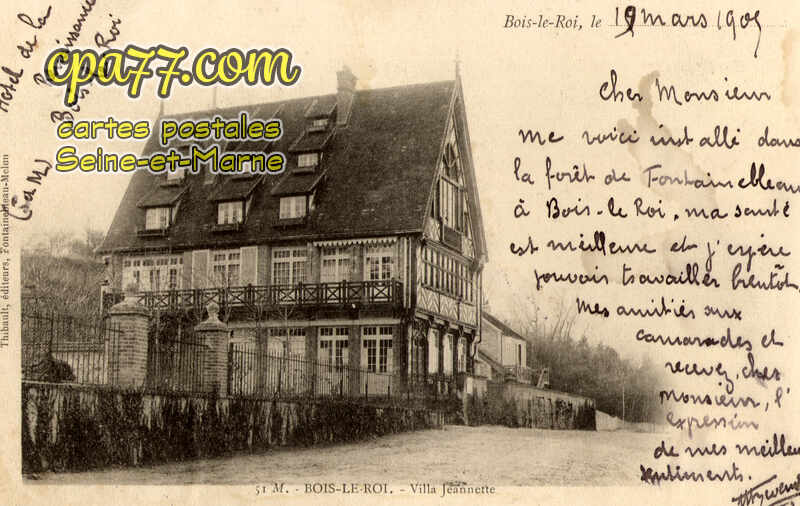 Hôtel de la
Renaissance
Bois-le-Roi
(S&M)
cpa77.com
cartes postales
Seine-et-Marne
Bois-le-Roi, le 19 mars 1905
Cher Monsieur
me voici installé dans
la forêt de Fontainebleau
à Bois-le Roi, ma santé
est meilleure et j'espère
pouvoir travailler bientôt,
Mes amitiés aux
camarades et
recevez, cher
Monsieur, l'
expression
de mes meilleurs
sentiments.
Thibault, éditeurs, Fontainebleau-Melun
51 M. - BOIS-LE-ROI. - Villa Jeannette